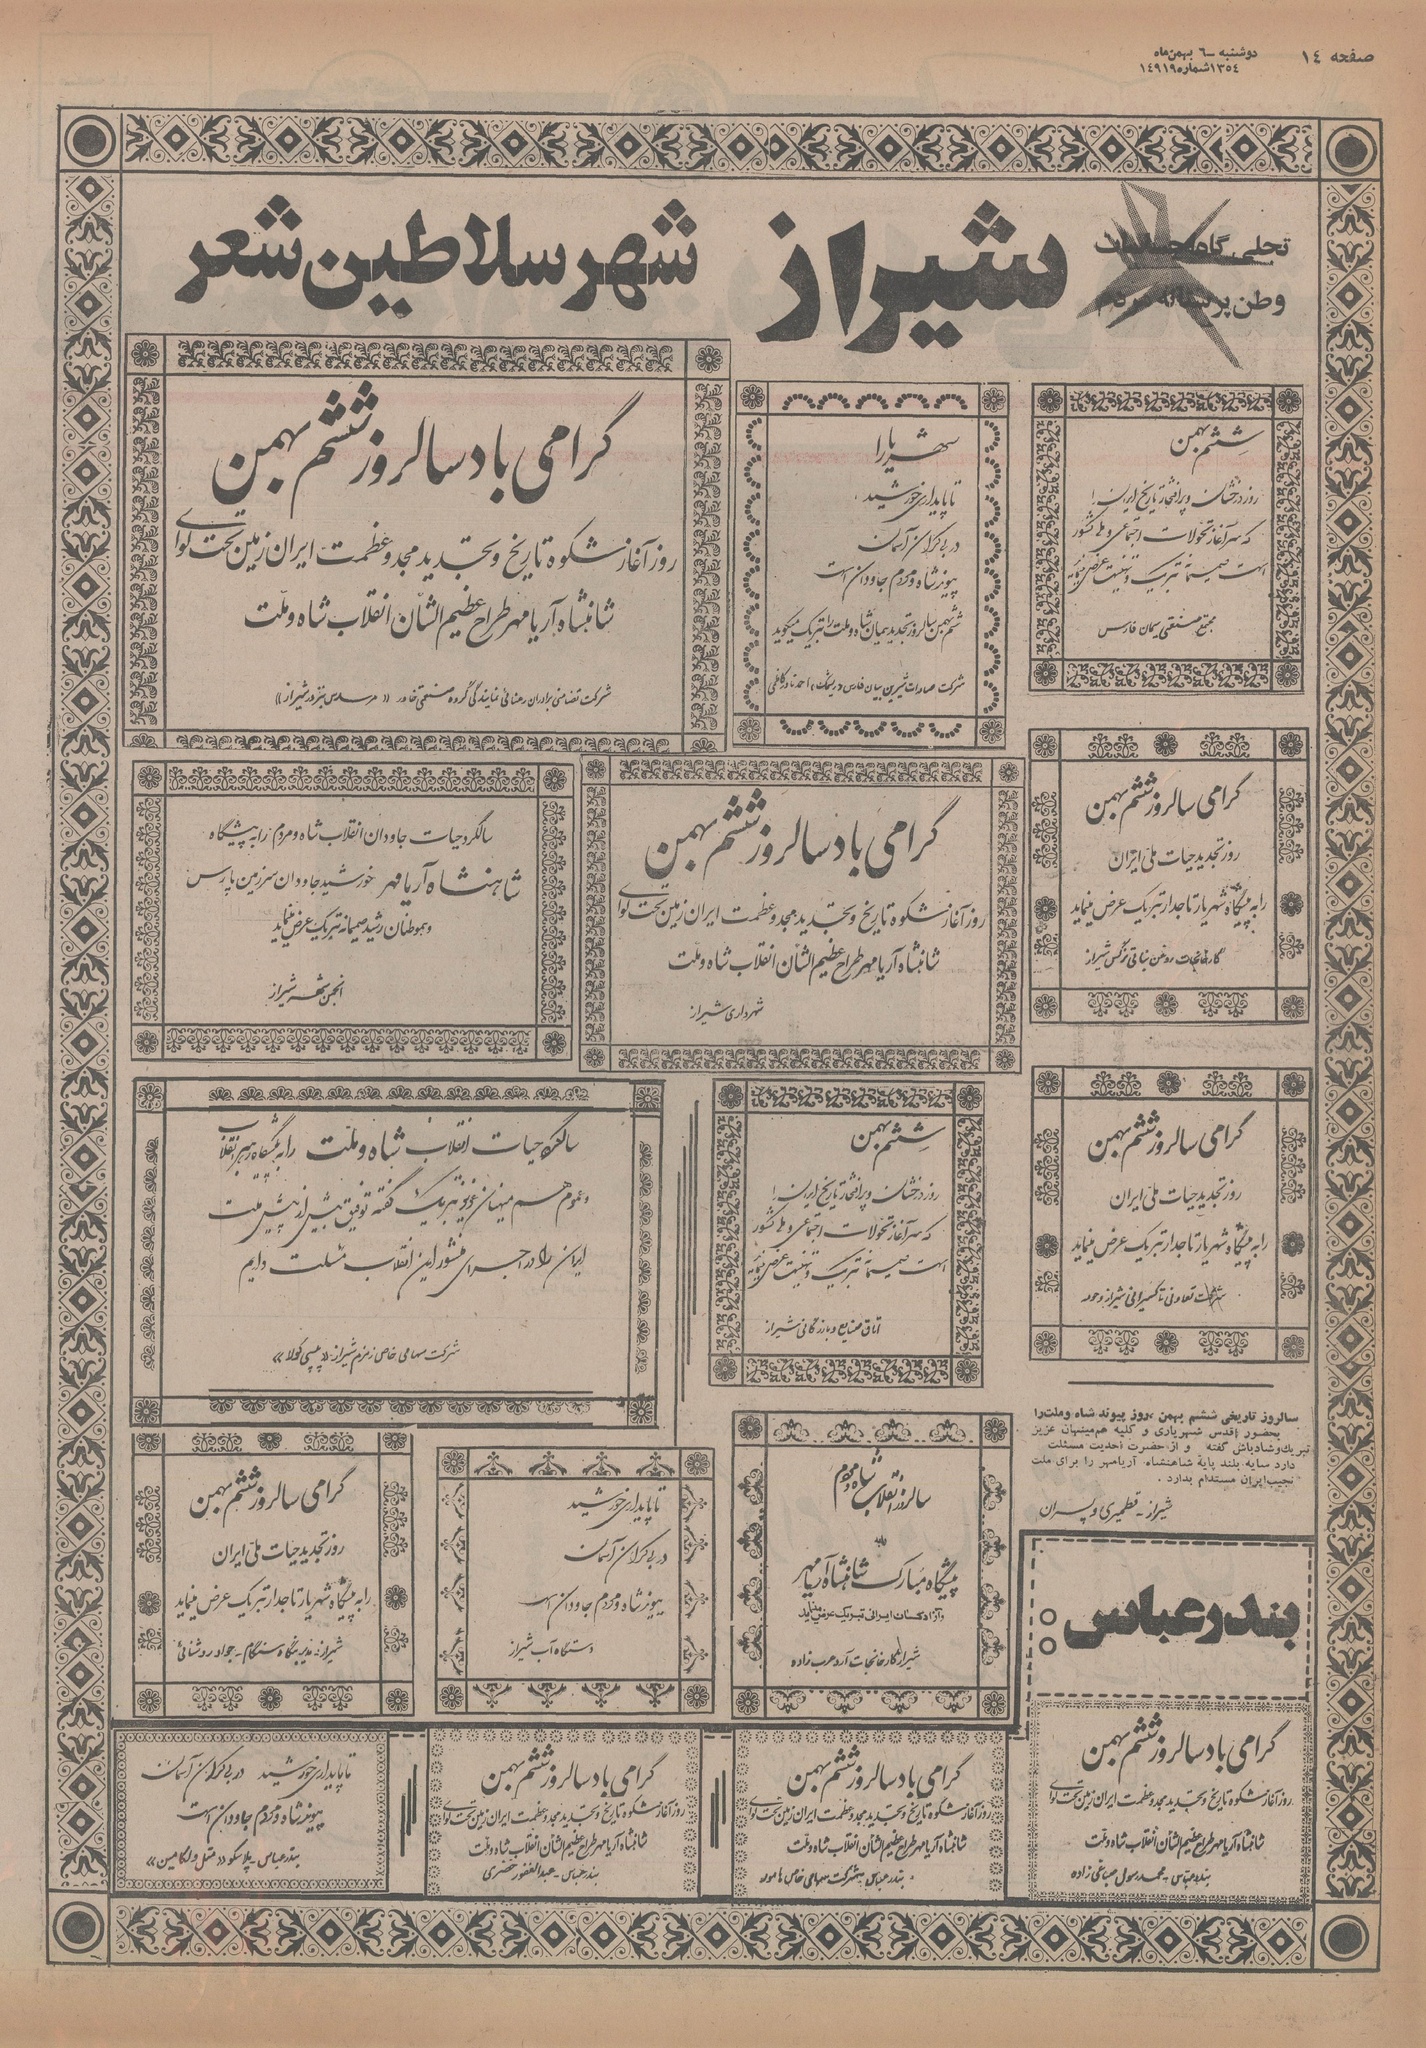 صفحه ١٤
دوشنبه ــ ٦ بهمن ماه
١٣٥٤ شماره ١٤٩١٩
تجلی گاه
وطن پرستانه مردم
شیراز شهر سلاطین شعر
ششم بهمن
روز درخشان و پرافتخار تاریخ ایران را
که سرآغاز تحولات اجتماعی و ملی کشور
است صمیمانه تبریک و تهنیت عرض مینماید
مجتمع صنعتی سیمان فارس
شهریارا
تا پایداری خورشید
در بیکران آسمان
پیوند شاه و مردم جاودان است
ششم بهمن سالروز تجدید پیمان شاه و ملت را تبریک میگوید
گرامی باد سالروز ششم بهمن
روز آغاز شکوه تاریخ و تجدید مجد و عظمت ایران زمین تحت لوای
شاهنشاه آریامهر طراح عظیم الشأن انقلاب شاه و ملت
شرکت تضامنی برادران رمضانی نمایندگی گروه صنعتی خاور «مرسدس بنز در شیراز»
گرامی سالروز ششم بهمن
روز تجدید حیات ملی ایران
را به پیشگاه شهریار تاجدار تبریک عرض مینماید
کارخانجات روغن نباتی نرگس شیراز
گرامی باد سالروز ششم بهمن
روز آغاز شکوه تاریخ و تجدید مجد و عظمت ایران زمین تحت لوای
شاهنشاه آریامهر طراح عظیم الشأن انقلاب شاه و ملت
شهرداری شیراز
سالگرد حیات جاودان انقلاب شاه و مردم را به پیشگاه
شاهنشاه آریامهر خورشید جاودان سرزمین پارس
و هموطنان رشید صمیمانه تبریک عرض مینماید
انجمن شهر شیراز
گرامی سالروز ششم بهمن
روز تجدید حیات ملی ایران
را به پیشگاه شهریار تاجدار تبریک عرض مینماید
شرکت تعاونی تاکسیرانی شیراز و حومه
ششم بهمن
روز درخشان و پرافتخار تاریخ ایران را
که سرآغاز تحولات اجتماعی و ملی کشور
است صمیمانه تبریک و تهنیت عرض مینماید
اتاق صنایع و بازرگانی شیراز
سالگرد حیات انقلاب شاه و ملت را به پیشگاه رهبر انقلاب
و عموم هم میهنان عزیز تبریک گفته توفیق بیش از پیش ملت
ایران را در اجرای منشور این انقلاب مسئلت داریم
شرکت سهامی خاص زمزم شیراز - «پپسی کولا»
سالروز تاریخی ششم بهمن، روز پیوند شاه و ملت را
بحضور اقدس شهریاری و کلیه هم‌میهنان عزیز
تبریك و شادباش گفته و از حضرت احدیت مسئلت
دارد سایه بلند پایهٔ شاهنشاه آریامهر را برای ملت
نجیب ایران مستدام بدارد .
شیراز - قطمیری و پسران
سالروز انقلاب شاه و مردم
به
پیشگاه مبارک شاهنشاه آریامهر
و آزادگان ایرانی تبریک عرض مینماید
شیراز کارخانجات آرد عرب زاده
تا پایداری خورشید
در بیکران آسمان
پیوند شاه و مردم جاودان است
دستگاه آب شیراز
گرامی سالروز ششم بهمن
روز تجدید حیات ملی ایران
را به پیشگاه شهریار تاجدار تبریک عرض مینماید
جواد روشنائی
بندرعباس
گرامی باد سالروز ششم بهمن
روز آغاز شکوه تاریخ و تجدید مجد و عظمت ایران زمین تحت لوای
شاهنشاه آریامهر طراح عظیم الشأن انقلاب شاه و ملت
بندرعباس - محمد رسول صباغی زاده
گرامی باد سالروز ششم بهمن
روز آغاز شکوه تاریخ و تجدید مجد و عظمت ایران زمین تحت لوای
شاهنشاه آریامهر طراح عظیم الشأن انقلاب شاه و ملت
بندرعباس - شرکت سهامی خاص
گرامی باد سالروز ششم بهمن
روز آغاز شکوه تاریخ و تجدید مجد و عظمت ایران زمین تحت لوای
شاهنشاه آریامهر طراح عظیم الشأن انقلاب شاه و ملت
بندرعباس - عبدالغفور خضری
تا پایداری خورشید در بیکران آسمان
پیوند شاه و مردم جاودان است
بندرعباس - پلاسکو